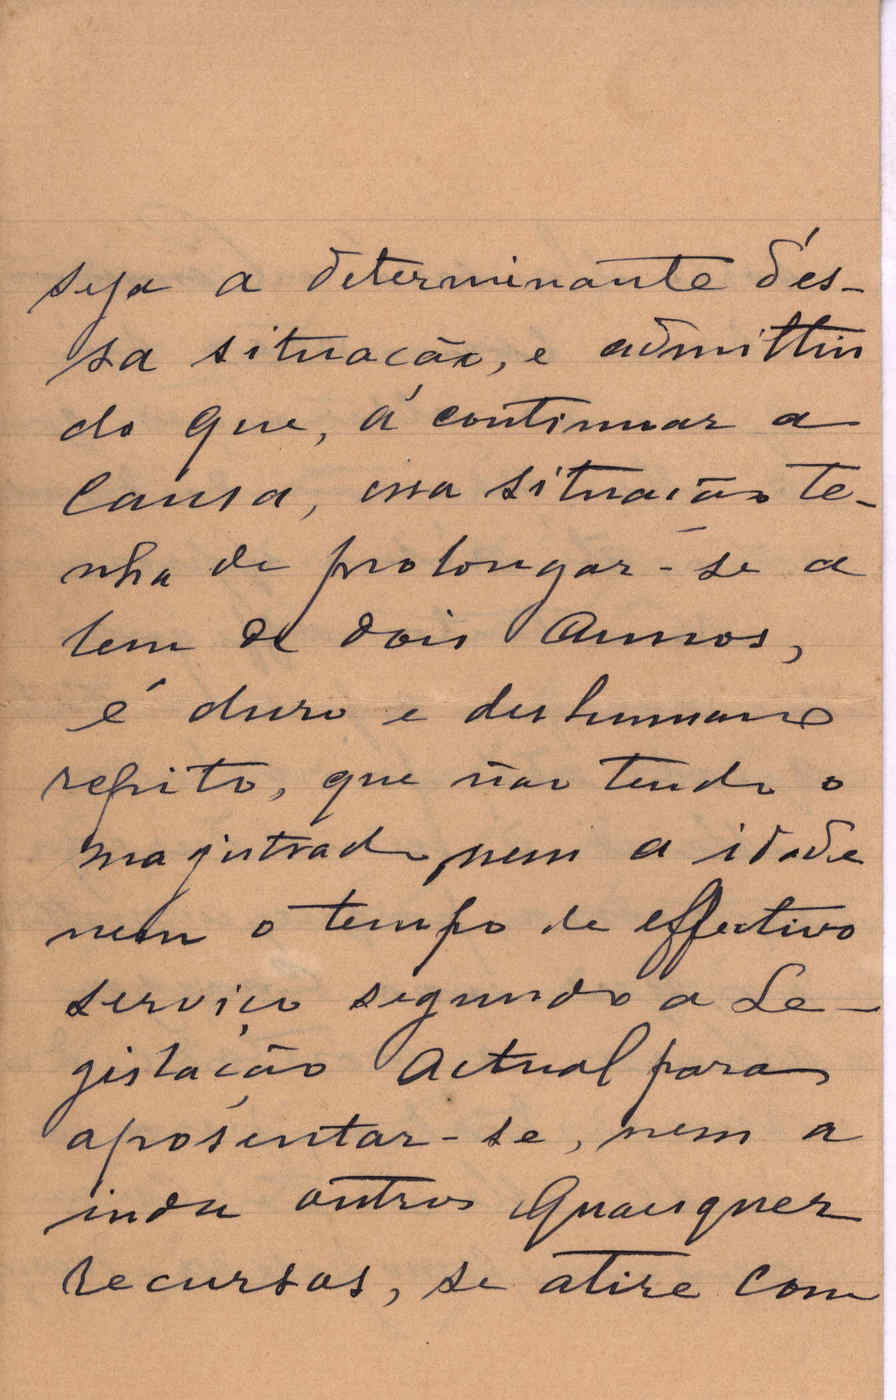 seja a determinante d'es-
sa situação, e admittin
do que, á continuar a
causa, essa situação te-
nha de prolongar-se a
lem de dois annos,
é duro e deshumano
repito, que não tendo o
magistrado, nem a idade
nem o tempo de effectivo
serviço segundo a Le-
gislação actual para
aposentar-se, nem a
inda outros quaesquer
recursos, se atire com